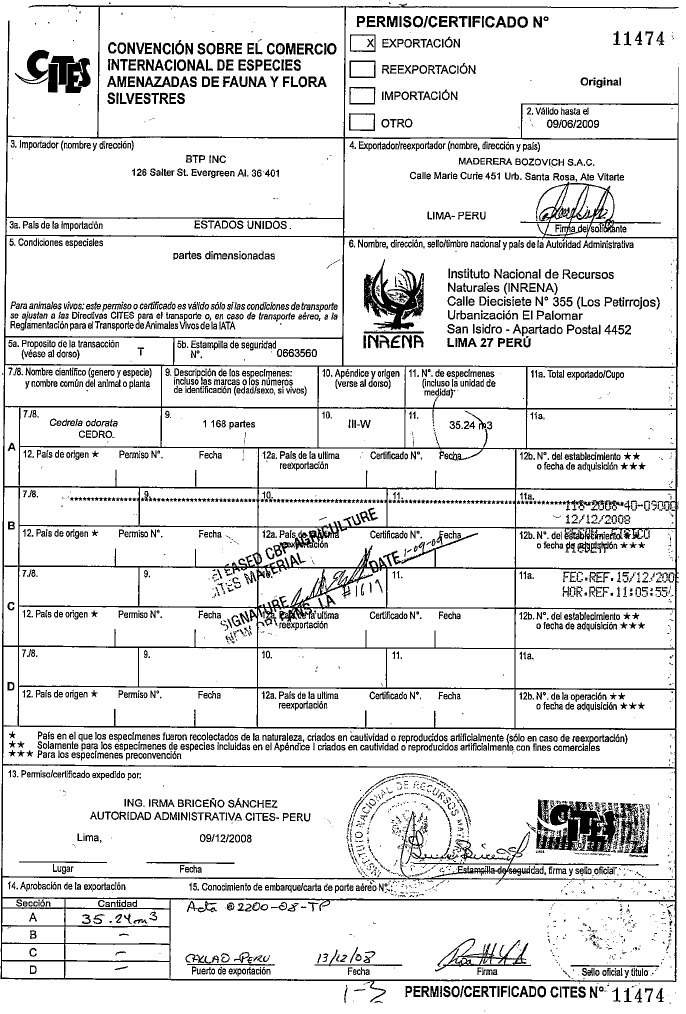 CITES
CONVENCIÓN SOBRE EL COMERCIO
INTERNACIONAL DE ESPECIES
AMENAZADAS DE FAUNA Y FLORA
SILVESTRES
PERMISO/CERTIFICADO N° 11474
X EXPORTACIÓN
REEXPORTACIÓN
IMPORTACIÓN
OTRO
Original
2. Válido hasta el
09/06/2009
3. Importador (nombre y dirección)
BTP INC
126 Salter St. Evergreen Al. 36 401
3a. País de la Importación ESTADOS UNIDOS.
4. Exportador/reexportador (nombre, dirección y país)
MADERERA BOZOVICH S.A.C.
Calle Marie Curie 451 Urb. Santa Rosa, Ate Vitarte
LIMA- PERU
Firma de solicitante
5. Condiciones especiales
partes dimensionadas
Para animales vivos: este permiso o certificado es válido sólo si las condiciones de transporte
se ajustan a las Directivas CITES para el transporte o, en caso de transporte aéreo, a la
Reglamentación para el Transporte de Animales Vivos de la IATA
6. Nombre, dirección, sello/timbre nacional y país de la Autoridad Administrativa
INRENA
Instituto Nacional de Recursos
Naturales (INRENA)
Calle Diecisiete N° 355 (Los Petirrojos)
Urbanización El Palomar
San Isidro - Apartado Postal 4452
LIMA 27 PERÚ
5a. Proposito de la transacción
(véase al dorso) T
5b. Estampilla de seguridad
N°. 0663560
7./8. Nombre científico (genero y especie)
y nombre común del animal o planta
9. Descripción de los especímenes:
incluso las marcas o los números
de identificación (edad/sexo, si vivos)
10. Apéndice y origen
(verse al dorso)
11. N°. de especímenes
(incluso la unidad de
medida)
11a. Total exportado/Cupo
A
7./8. Cedrela odorata
CEDRO.
9. 1 168 partes
10. III-W
11. 35.24 m3
11a.
12. País de origen ★ Permiso N°. Fecha
12a. País de la ultima
reexportación Certificado N°. Fecha
12b. N°. del establecimiento ★★
o fecha de adquisición ★★★
B
7./8. 9. 10. 11. 11a.
118-2008-40-09000
12/12/2008
12. País de origen ★ Permiso N°. Fecha
12a. País de la ultima
reexportación Certificado N°. Fecha
12b. N°. del establecimiento ★★
o fecha de adquisición ★★★
RELEASED CBP AGRICULTURE
CITES MATERIAL
SIGNATURE #1617 DATE 1-09-09
NEW ORLEANS, LA
C
7./8. 9. 11. 11a.
FEC.REF.15/12/2008
HOR.REF.11:05:55
12. País de origen ★ Permiso N°. Fecha
12a. País de la ultima
reexportación Certificado N°. Fecha
12b. N°. del establecimiento ★★
o fecha de adquisición ★★★
D
7./8. 9. 10. 11. 11a.
12. País de origen ★ Permiso N°. Fecha
12a. País de la ultima
reexportación Certificado N°. Fecha
12b. N°. de la operación ★★
o fecha de adquisición ★★★
★ País en el que los especímenes fueron recolectados de la naturaleza, criados en cautividad o reproducidos artificialmente (sólo en caso de reexportación)
★★ Solamente para los especímenes de especies incluidas en el Apéndice I criados en cautividad o reproducidos artificialmente con fines comerciales
★★★ Para los especímenes preconvención
13. Permiso/certificado expedido por:
ING. IRMA BRICEÑO SÁNCHEZ
AUTORIDAD ADMINISTRATIVA CITES- PERU
Lima, 09/12/2008
Lugar Fecha
INSTITUTO NACIONAL DE RECURSOS
CITES
Estampilla de seguridad, firma y sello oficial
14. Aprobación de la exportación
Sección Cantidad
A 35.24 m3
B –
C –
D –
15. Conocimiento de embarque/carta de porte aéreo N°.
Acta @2200-08-TP
CALLAO-PERU 13/12/08
Puerto de exportación Fecha Firma Sello oficial y título
1-3
PERMISO/CERTIFICADO CITES N° 11474